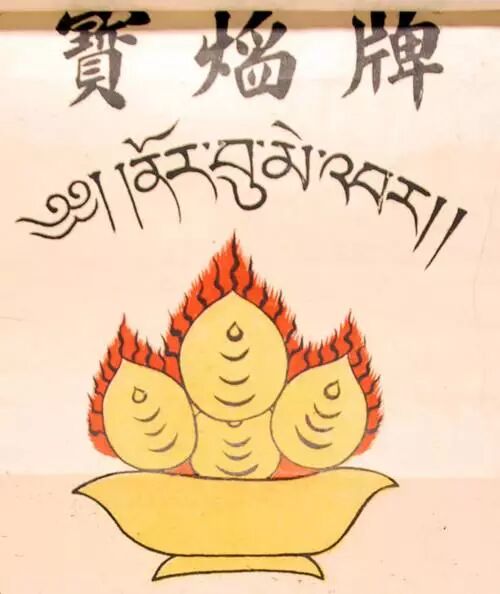 寶熖牌
༄༅།།ནོར་བུ་མེ་འབར།།